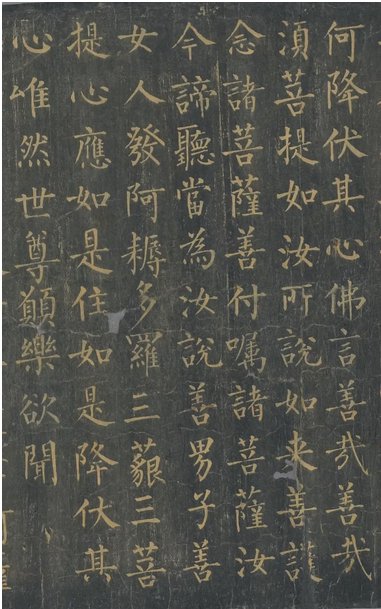 何降伏其心佛言善哉善哉
須菩提如汝所說如来善護
念諸菩薩善付嘱諸菩薩汝
今諦聽當為汝說善男子善
女人發阿耨多羅三藐三菩
提心應如是住如是降伏其
心唯然世尊願樂欲聞